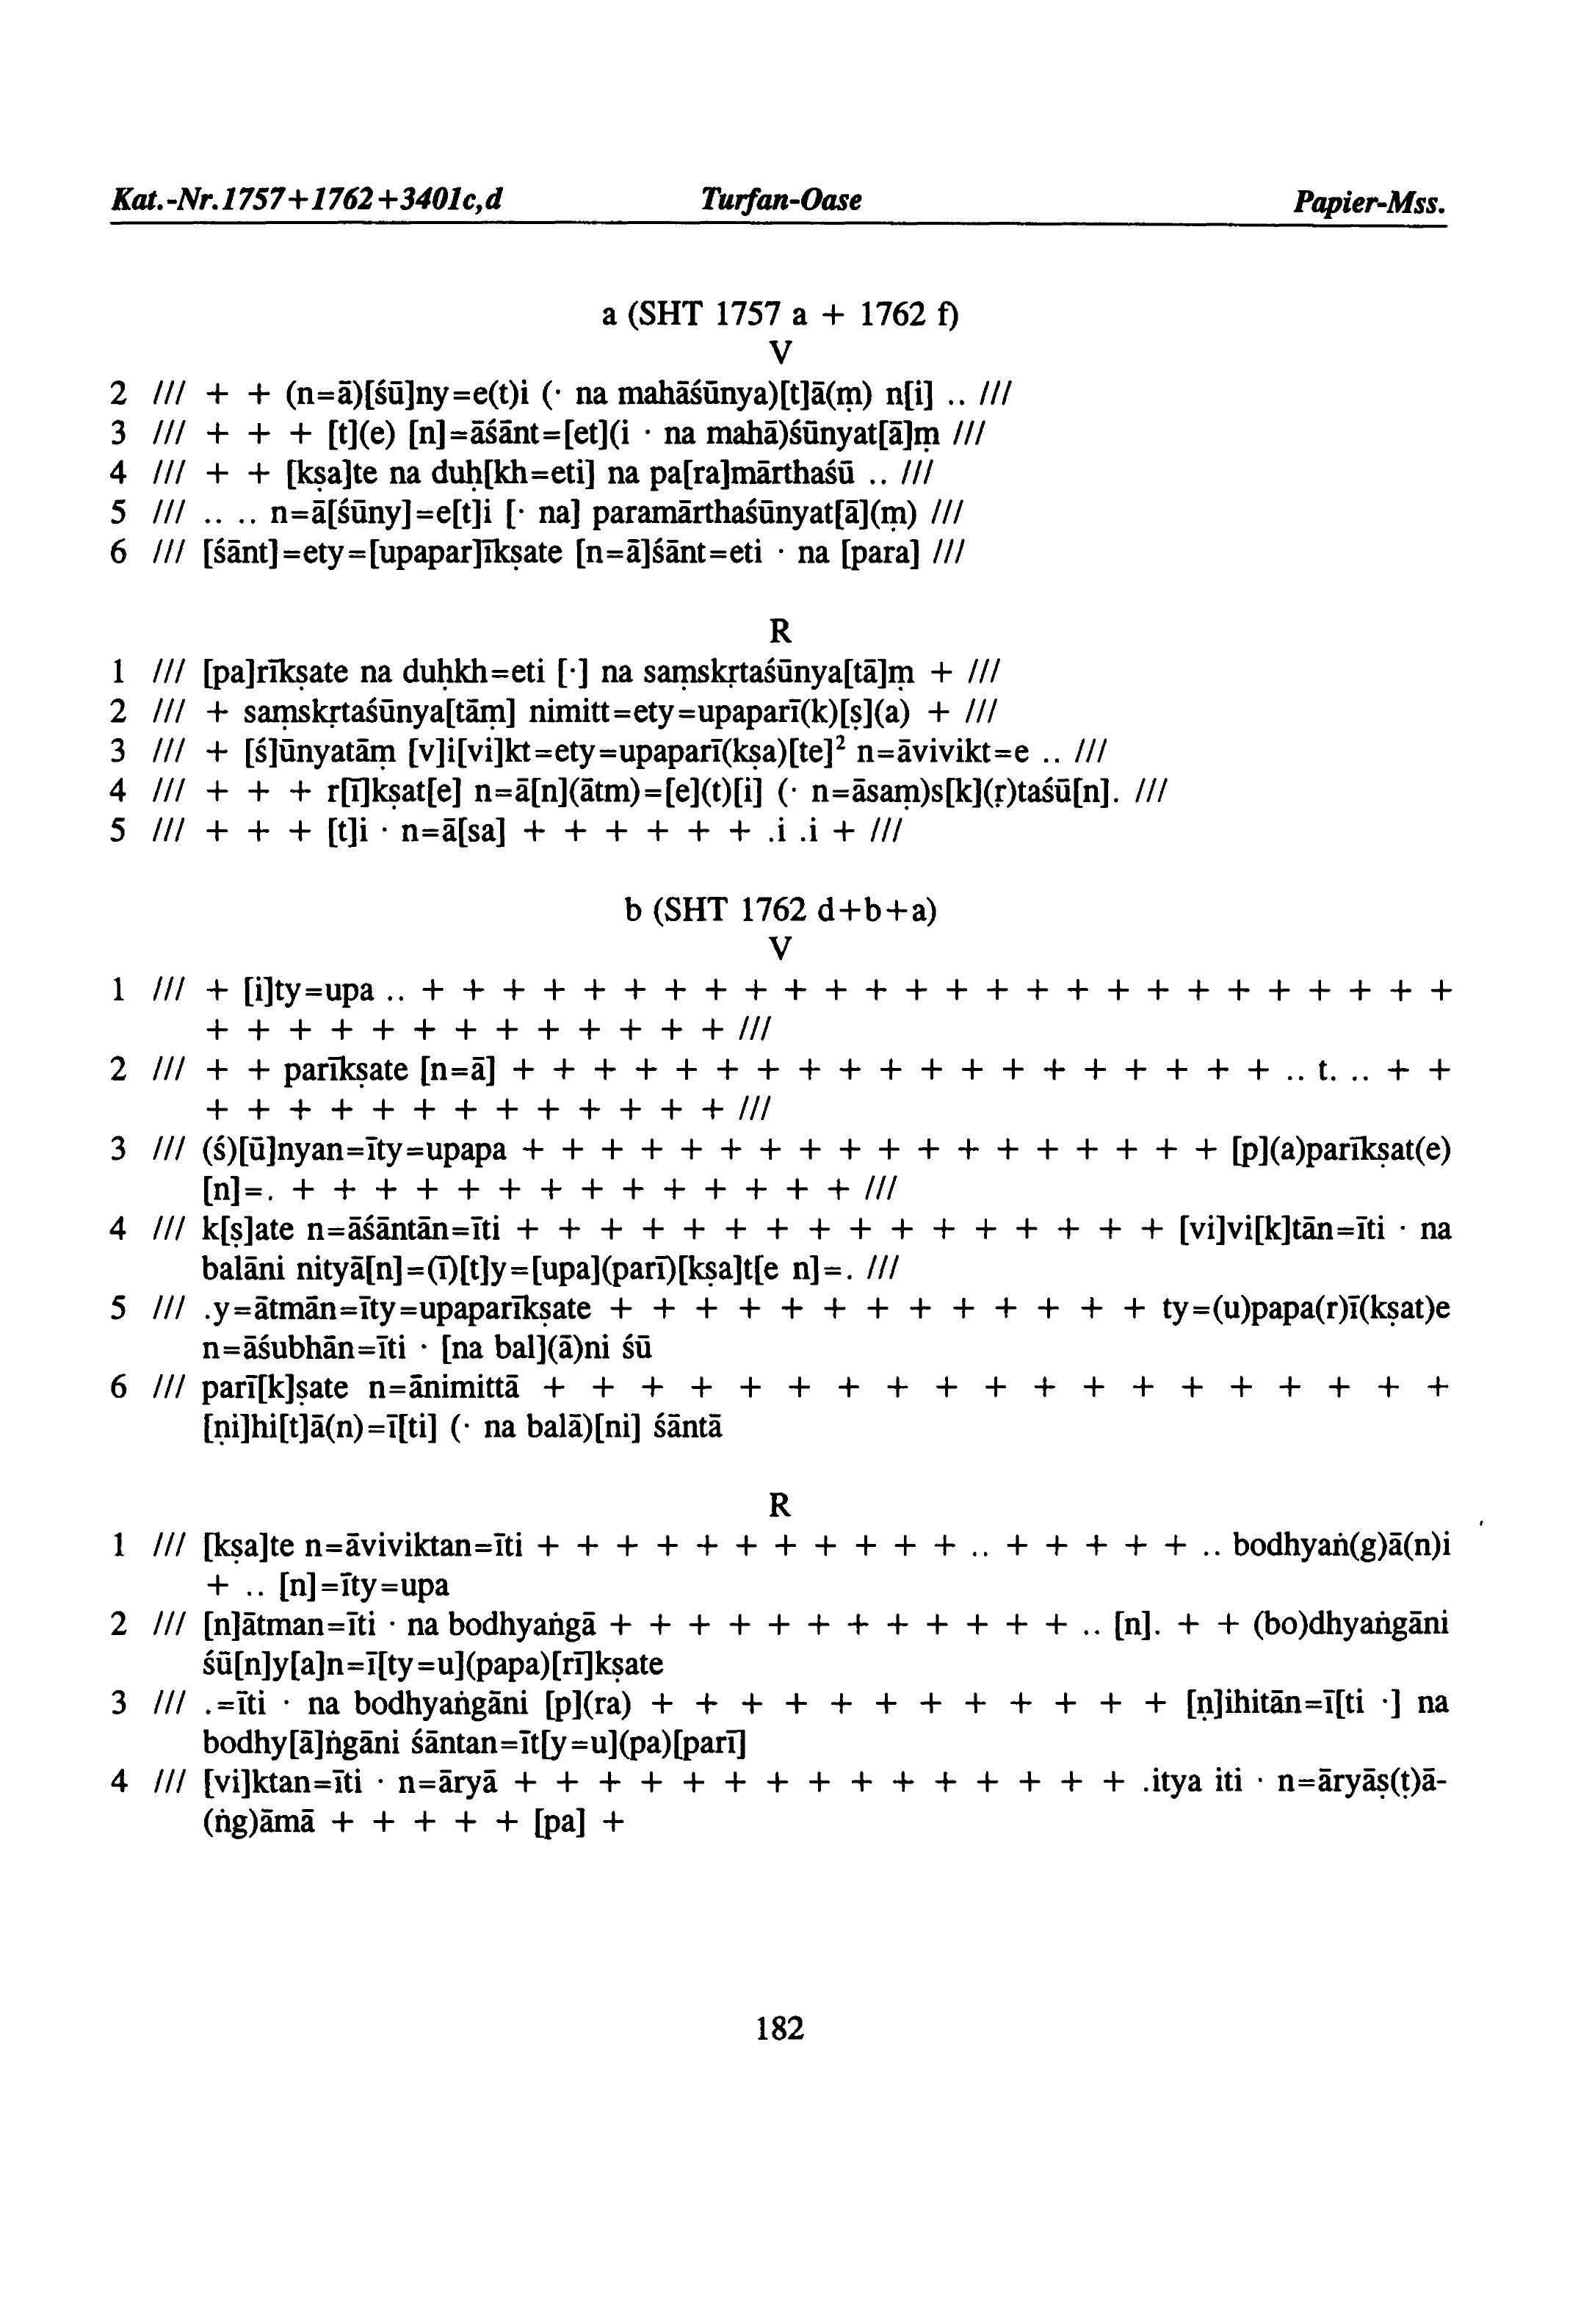 Kat.-Nr. 1757+1762+3401c,d Turfan-Oase Papier-Mss.
a (SHT 1757 a + 1762 f)
V
2 /// + + (n=ā)[śū]ny=e(t)i (· na mahāśūnya)[t]ā(ṃ) n[i] .. ///
3 /// + + + [t](e) [n]=āśānt=[et](i · na mahā)śūnyat[ā]ṃ ///
4 /// + + [kṣa]te na duḥ[kh=eti] na pa[ra]mārthaśū .. ///
5 /// .. .. n=ā[śūny]=e[t]i [· na] paramārthaśūnyat[ā](ṃ) ///
6 /// [śānt]=ety=[upapar]īkṣate [n=ā]śānt=eti · na [para] ///
R
1 /// [pa]rīkṣate na duḥkh=eti [·] na saṃskṛtaśūnya[tā]ṃ + ///
2 /// + saṃskṛtaśūnya[tāṃ] nimitt=ety=upaparī(k)[ṣ](a) + ///
3 /// + [ś]ūnyatāṃ [v]i[vi]kt=ety=upaparī(kṣa)[te]² n=āvivikt=e .. ///
4 /// + + + r[ī]kṣat[e] n=ā[n](ātm)=[e](t)[i] (· n=āsaṃ)s[k](ṛ)taśū[n]. ///
5 /// + + + [t]i · n=ā[sa] + + + + + + .i .i + ///
b (SHT 1762 d+b+a)
V
1 /// + [i]ty=upa .. + + + + + + + + + + + + + + + + + + + + + + + + + +
+ + + + + + + + + + + + + ///
2 /// + + parīkṣate [n=ā] + + + + + + + + + + + + + + + + + + + .. t. .. + +
+ + + + + + + + + + + + + ///
3 /// (ś)[ū]nyan=īty=upapa + + + + + + + + + + + + + + + + + + [p](a)parīkṣat(e)
[n]=. + + + + + + + + + + + + + + ///
4 /// k[ṣ]ate n=āśāntān=īti + + + + + + + + + + + + + + + + [vi]vi[k]tān=īti · na
balāni nityā[n]=(ī)[t]y=[upa](parī)[kṣa]t[e n]=. ///
5 /// .y=ātmān=īty=upaparīkṣate + + + + + + + + + + + + + ty=(u)papa(r)ī(kṣat)e
n=āśubhān=īti · [na bal](ā)ni śū
6 /// parī[k]ṣate n=ānimittā + + + + + + + + + + + + + + + + + + +
[ṇi]hi[t]ā(n)=ī[ti] (· na balā)[ni] śāntā
R
1 /// [kṣa]te n=āviviktan=īti + + + + + + + + + + + .. + + + + + .. bodhyaṅ(g)ā(n)i
+ .. [n]=īty=upa
2 /// [n]ātman=īti · na bodhyaṅgā + + + + + + + + + + + + .. [n]. + + (bo)dhyaṅgāni
śū[n]y[a]n=ī[ty=u](papa)[rī]kṣate
3 /// .=īti · na bodhyaṅgāni [p](ra) + + + + + + + + + + + + [ṇ]ihitān=ī[ti ·] na
bodhy[ā]ṅgāni śāntan=īt[y=u](pa)[parī]
4 /// [vi]ktan=īti · n=āryā + + + + + + + + + + + + + + + .itya iti · n=āryāṣ(ṭ)ā-
(ṅg)āmā + + + + + [pa] +
182